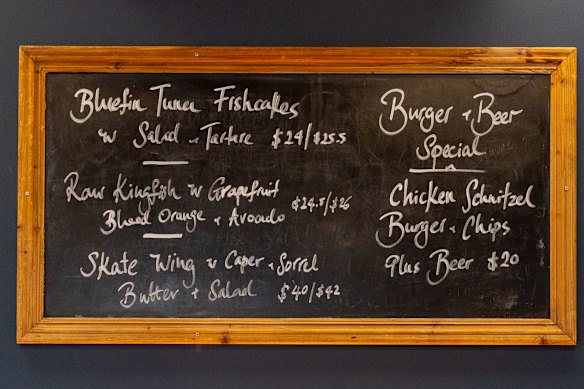 Bluefin Tuna Fishcakes
w Salad + Tartare $24/$25.5
Raw Kingfish w Grapefruit
Blood Orange + Avocado $24.5/$26
Skate Wing w Caper + Sorrel
Butter + Salad $40/$42
Burger + Beer
Special
Chicken Schnitzel
Burger + Chips
Plus Beer $20